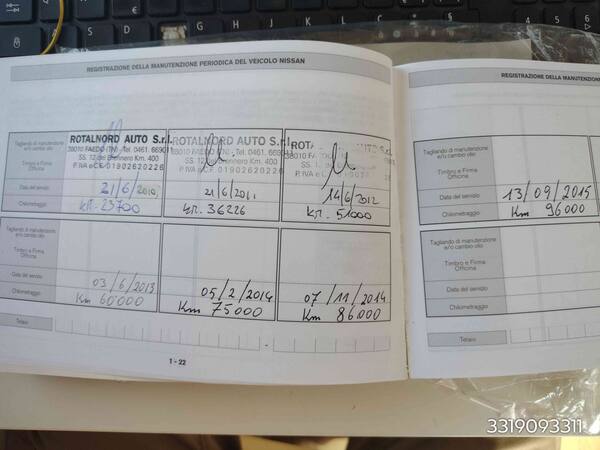 REGISTRAZIONE DELLA MANUTENZIONE PERIODICA DEL VEICOLO NISSAN
Tagliando di manutenzione
e/o cambio olio
Timbro e Firma
Officina
Data del servizio
Chilometraggio
ROTALNORD AUTO S.r.l.
38010 FAEDO (TN) Tel. 0461.
SS. 12 del Brennero Km. 400
P. IVA e C.F. 01902620226
21/6/2010
Km. 23700
ROTALNORD AUTO S.r.l.
38010 FAEDO (TN) Tel. 0461.
SS. 12 del Brennero Km. 400
P. IVA e C.F. 01902620226
21/6/201
Km. 36226
14/6/2012
Km. 51000
Tagliando di manutenzione
e/o cambio olio
Timbro e Firma
Officina
Data del servizio
Chilometraggio
03/6/2013
Km 60000
05/2/2014
Km 75000
07/11/2014
Km 86000
Totale:
1 - 22
REGISTRAZIONE DELLA MANUTENZIONE
Tagliando di manutenzione
e/o cambio olio
Timbro e Firma
Officina
Data del servizio
Chilometraggio
13/09/2015
Km 96000
Tagliando di manutenzione
e/o cambio olio
Timbro e Firma
Officina
Data del servizio
Chilometraggio
Totale:
3319093311